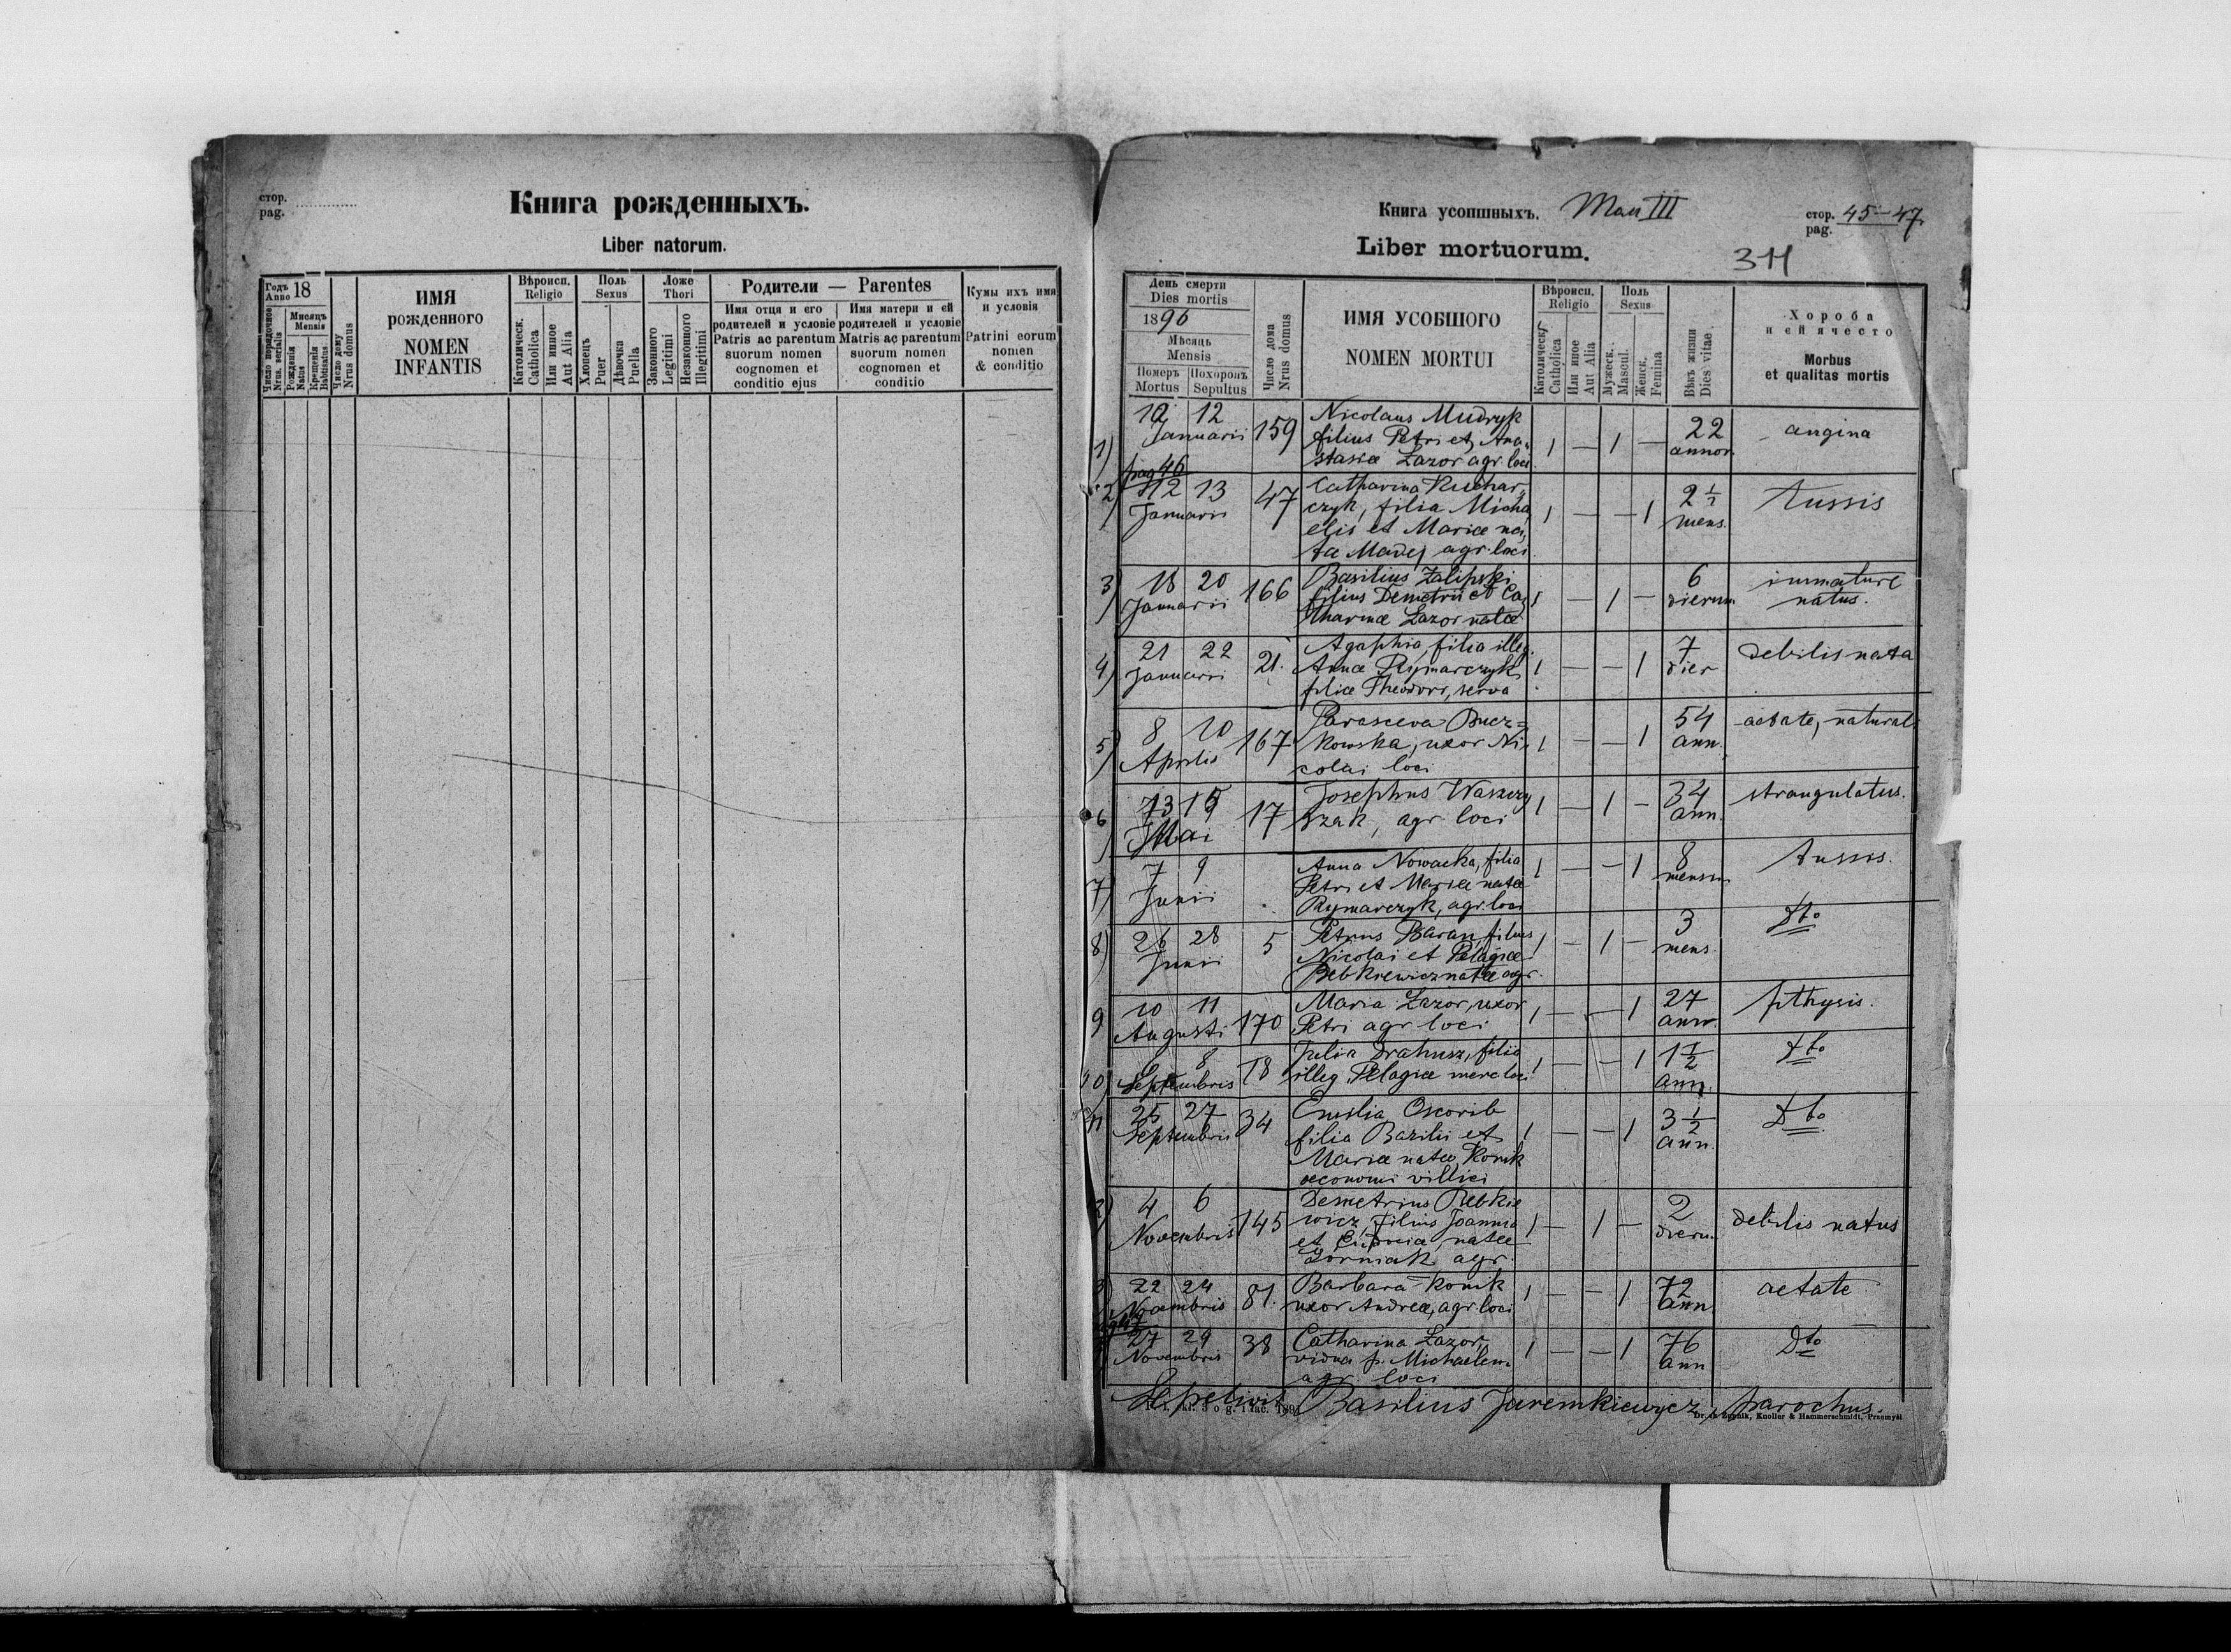 стор.
pag.
Книга рожденныхъ.
Liber natorum.
Годъ
Anno 18
Число порядочное
Nrus. serialis
Мѣсяцъ
Mensis
Рожденія
Natus
Крещенія
Babtisatus
Число дому
Nrus domus
ИМЯ
рожденного
NOMEN
INFANTIS
Вѣроисп.
Religio
Католическ.
Catholica
Или инное
Aut Alia
Полъ
Sexus
Хлопецъ
Puer
Дѣвочка
Puella
Ложе
Thori
Законного
Legitimi
Незаконного
Illegitimi
Родители — Parentes
Имя отца и его
родителей и условіе
Patris ac parentum
suorum nomen
cognomen et
conditio ejus
Имя матери и ей
родителей и условіе
Matris ac parentum
suorum nomen
cognomen et
conditio
Кумы ихъ имя
и условія
Patrini eorum
nomen
& conditio
Книга усопшныхъ.
III
стор. 45-47
pag.
Liber mortuorum.
311
День смерти
Dies mortis
1896
Мѣсяць
Mensis
Померъ
Mortus
Похоронъ
Sepultus
Число дома
Nrus domus
ИМЯ УСОБШОГО
NOMEN MORTUI
Вѣроисп.
Religio
Католическ.
Catholica
Или иное
Aut Alia
Полъ
Sexus
Мужеск.
Mascul.
Женск.
Femina
Вѣкъ жизни
Dies vitae
Хороба
и ей ячесто
Morbus
et qualitas mortis
1) 10 12 Januarii 159 Nicolaus Mudryk 1 — 1 — 22 annor. angina
filius Petri et Ana-
stasiæ Lazor agr. loci
pag 46
2) 12 13 Januarii 47 Catharina Kuchar- 1 — — 1 2 1/2 mens. tussis
czyk, filia Micha
elis et Mariæ na-
tæ Madej agr. loci
3) 18 20 Januarii 166 Basilius Zalipski 1 — 1 — 6 dierum immature
filius Demetrii et Ca- natus.
tharinæ Lazor natæ
4) 21 22 Januarii 21. Agaphia, filia illeg. 1 — — 1 7 dier debilis nata
Annæ Rymarczyk
filiæ Theodori, serva
5) 8 10 Aprilis 167 Parasceva Bucz- 1 — — 1 54 ann. aetate, natural
kowska, uxor Ni-
colai loci
6) 13 15 Mai 17 Josephus Waszczy 1 — 1 — 34 ann. strangulatus.
szak, agr loci
7) 7 9 Junii Anna Nowacka, filia 1 — — 1 8 mensiu tussis.
Petri et Mariæ natæ
Rymarczyk, agr. loci
8) 26 28 Junii 5 Petrus Baran, filius 1 — 1 — 3 mens. Dto
Nicolai et Pelagiæ
Bebkiewicz natæ agr.
9 10 11 Augusti 170 Maria Lazor, uxor 1 — — 1 27 ann. pthysis.
Petri agr loci
10) 6 8 Septembris 78 Julia Drahusz, filia 1 — — 1 1 1/2 ann. Dto
illeg. Pelagiæ merc loci
11 25 27 Septembris 34 Emilia Oscorib 1 — — 1 3 1/2 ann. Dto
filia Bazilii et
Mariæ natæ Konik
œconomi villici
2) 4 6 Novembris 145 Demetrius Bebkie 1 — 1 — 2 dieru. debilis natus
wicz, filius Joannis
et natæ
Gorniak agr.
3) 22 24 Novembris 81. Barbara Konik 1 — — 1 72 ann aetate
uxor Andreæ, agr loci
pag 47
27 29 Novembris 38 Catharina Lazor, 1 — — 1 76 ann Dto
vidua p. Michaelem
agr. loci
Sepelivit Basilius Jaremkiewicz, parochus.
Knoller & Hammerschmidt, Przemyśl